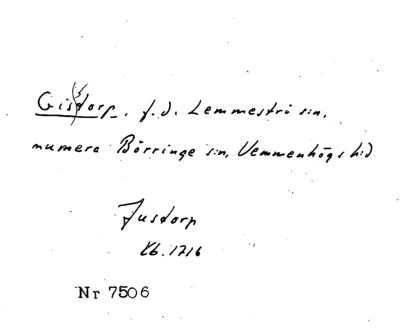 Gisdorp, f.d. Lemmeströ sn,
numera Börringe sn, Vemmenhögs hd
Justorp
Lb. 1716
Nr 7506